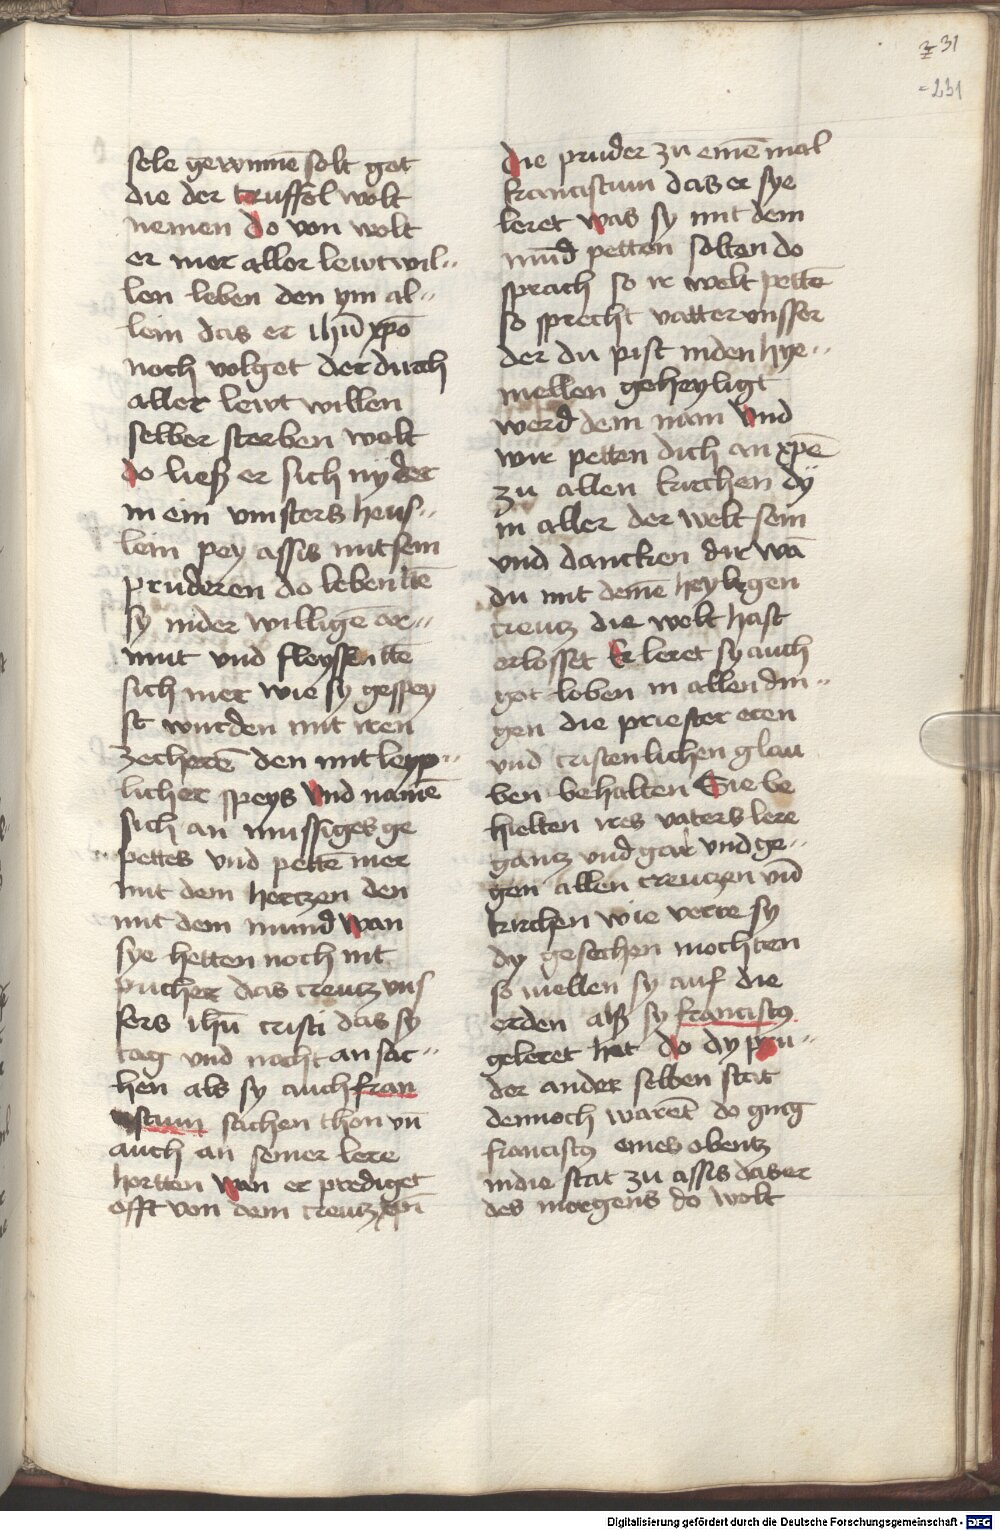 z 31
231
sele gewinnē solt got
die der teuffel wolt
nemen do von wolt
er mer aller lewt wil„
len leben den ym al„
lein das er ihū xpō
noch volget der durch
aller lewt willen
selber sterben wolt
do ließ er sich nyder
in ein vinsters heus„
lein pey assis mit sein
pruderen do lebenttē
sy inder willigē ar„
mut vnd fleyssenttē
sich mer wie sy gespey
st wurden mit iren
zecherē den mit leyp„
licher speys vnd namē
sich an mussiges ge
pettes vnd pettē mer
mit dem hertzen den
mit dem mund wan
sye hetten noch nit
pucher das creutz vns
sers ihū cristi das sy
tag vnd nacht an sac„
hen als sy auch fran
ciscum sachen thon vn̄
auch an seiner lere
hortten wan er prediget
offt von dem creutz xpī
die pruder zu einē mal
franciscum das er sye
leret was sy mit dem
mūd petten solten do
sprach so ir welt pettē
so sprecht vatter vnsser
der du pist inden hye„
mellen geheyligt
werd dein nam vnd
wir petten dich an xpē
zu allen kirchen dy
in aller der welt sein
vnd dancken dir wā
du mit deinē heyligen
creutz die welt hast
erlosset Er leret sy auch
got loben in allen din„
gen die priester eren
vnd cristenlichen glau
ben behalten Sie be
hielten ires vaters lere
gantz vnd gar vnd ge„
gen allen creutzen vn̄d
kirchen wie verre sy
dy gesechen mochten
so niellen sy auf die
erden alß sy franciscus
geleret hat do dy pru„
der ander selben stat
dennoch warēt do ging
franciscus eines obentz
indie stat zu assis das er
des morgens do wolt
Digitalisierung gefördert durch die Deutsche Forschungsgemeinschaft - DFG